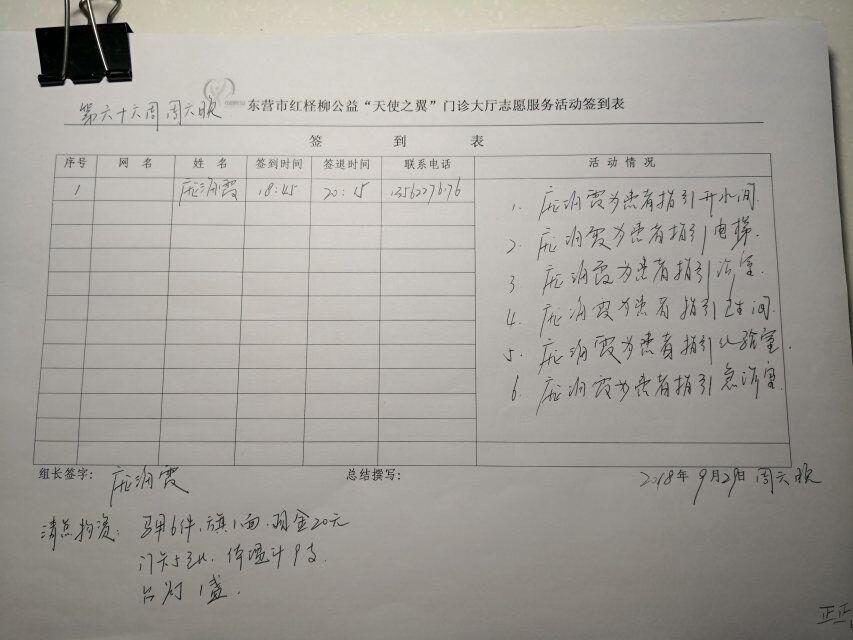 东营市红柽柳公益“天使之翼”门诊大厅志愿服务活动签到表
第六十六周 周六晚
签 到 表
序号 网 名 姓 名 签到时间 签退时间 联系电话 活 动 情 况
1 庞润霞 18:45 20:15
1. 庞润霞为患者指引开水间.
2. 庞润霞为患者指引电梯.
3 庞润霞为患者指引诊室.
4. 庞润霞为患者指引卫生间.
5. 庞润霞为患者指引化验室.
6. 庞润霞为患者指引急诊室.
组长签字: 庞润霞 总结撰写: 2018年9月29日 周六晚
清点物资: 马甲6件、旗1面、现金20元
体温计9支.
台灯1盏.
正正